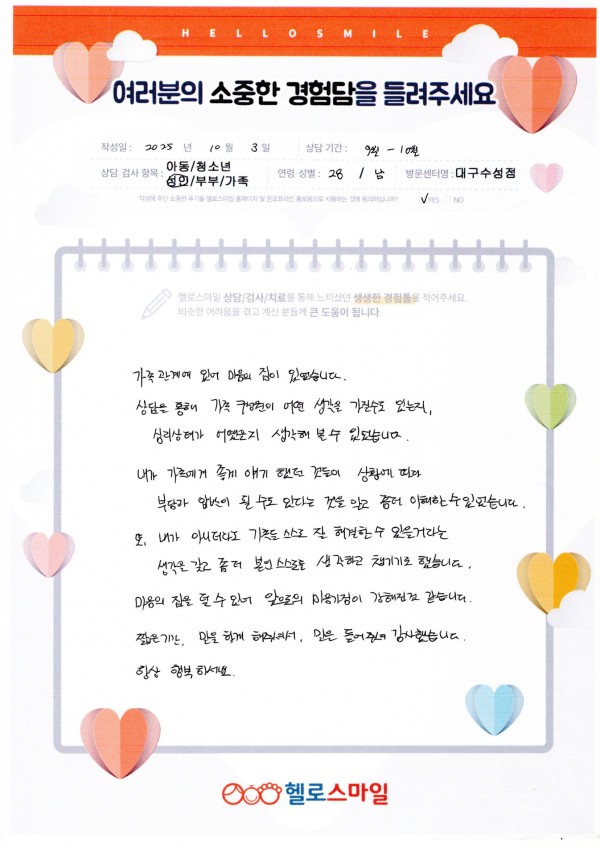 HELLOSMILE
여러분의 소중한 경험담을 들려주세요
작성일 : 2025 년 10 월 3 일 상담 기간 : 9월 - 10월
상담 검사 항목 : 아동/청소년 성인/부부/가족 연령 성별 : 28 / 남 방문센터명 : 대구수성점
작성해 주신 소중한 후기를 헬로스마일 홈페이지 및 온오프라인 홍보용으로 사용하는 것에 동의하십니까? ✓YES □ NO
헬로스마일 상담/검사/치료를 통해 느끼셨던 생생한 경험들을 적어주세요.
비슷한 어려움을 겪고 계신 분들께 큰 도움이 됩니다.
가족 관계에 있어 마음의 짐이 있었습니다.
상담을 통해 가족 구성원이 어떤 생각을 가질수도 있는지,
심리상태가 어땠는지 생각해 볼 수 있었습니다.
내가 가족에게 좋게 얘기 했던 것들이 상황에 따라
부담과 압박이 될 수도 있다는 것을 알고 좀더 이해할 수 있었습니다.
또, 내가 아니더라도 가족들 스스로 잘 해결할 수 있을거라는
생각을 갖고 좀 더 본인 스스로를 생각하고 챙기기로 했습니다.
마음의 짐을 덜 수 있어 앞으로의 마음가짐이 강해진것 같습니다.
짧은기간, 말을 하게 해주셔서, 말은 들어주셔 감사했습니다.
항상 행복하세요.
헬로스마일